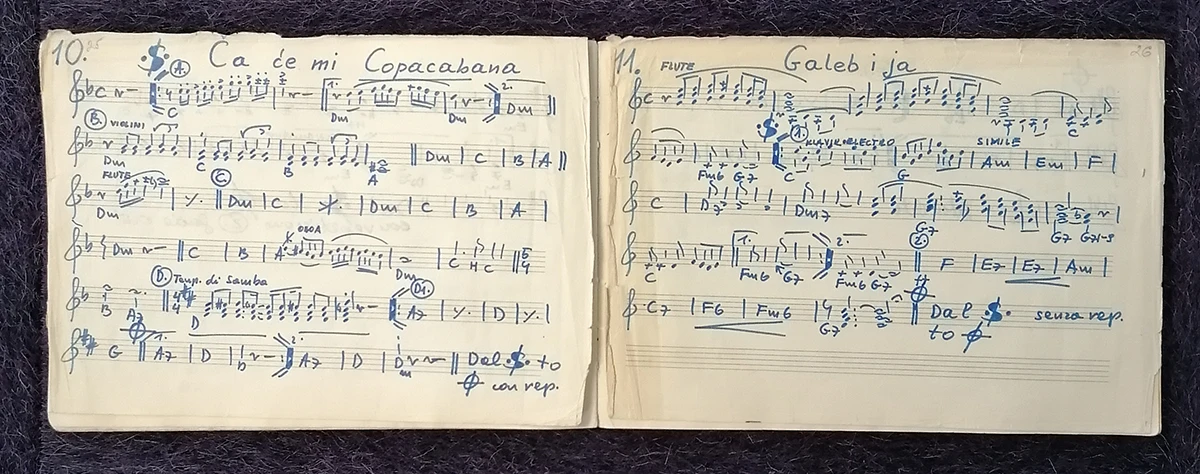 10. 25
Ca će mi Copacabana
A.
C
1. 2.
C Dm Dm Dm
B. VIOLINI
Dm C B A Dm C B A
FLUTE C
Dm Dm C Dm C B A
OBOA
Dm C B A Dm C H C 5 4
D. Temp. di Samba D1.
B A7 4 4 D A7 D
1. 2.
G A7 D D A7 D D Dal $ to
con rep.
11. 26
Galeb i ja
FLUTE
C C
1. KLAVIR ELECTRO SIMILE
Fm6 G7 C G Am Em F
C D7 Dm7 G7 G7
1. 2. 2.
C Fm6 G7 Fm6 G7 F E7 E7 Am
C7 F6 Fm6 G7 Dal $ senza rep.
to